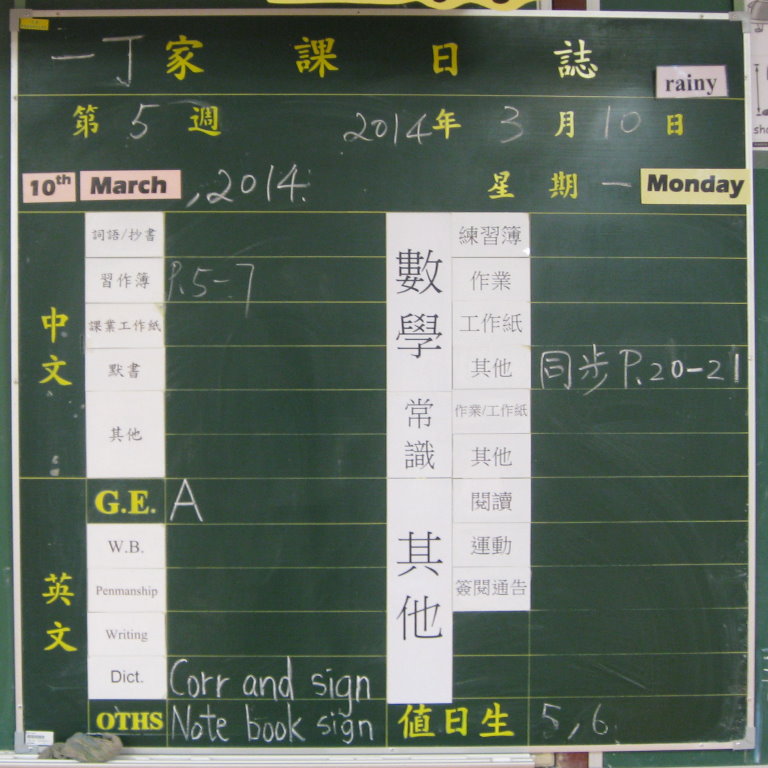 一丁家課日誌
rainy
第5週 2014年3月10日
10th March , 2014. 星期一 Monday
中文
詞語/抄書
習作簿 P.5-7
課業工作紙
默書
其他
英文
G.E. A
W.B.
Penmanship
Writing
Dict. Corr and sign
OTHS Note book sign
數學
練習簿
作業
工作紙
其他 同步 P.20-21
常識
作業/工作紙
其他
其他
閱讀
運動
簽閱通告
值日生 5,6